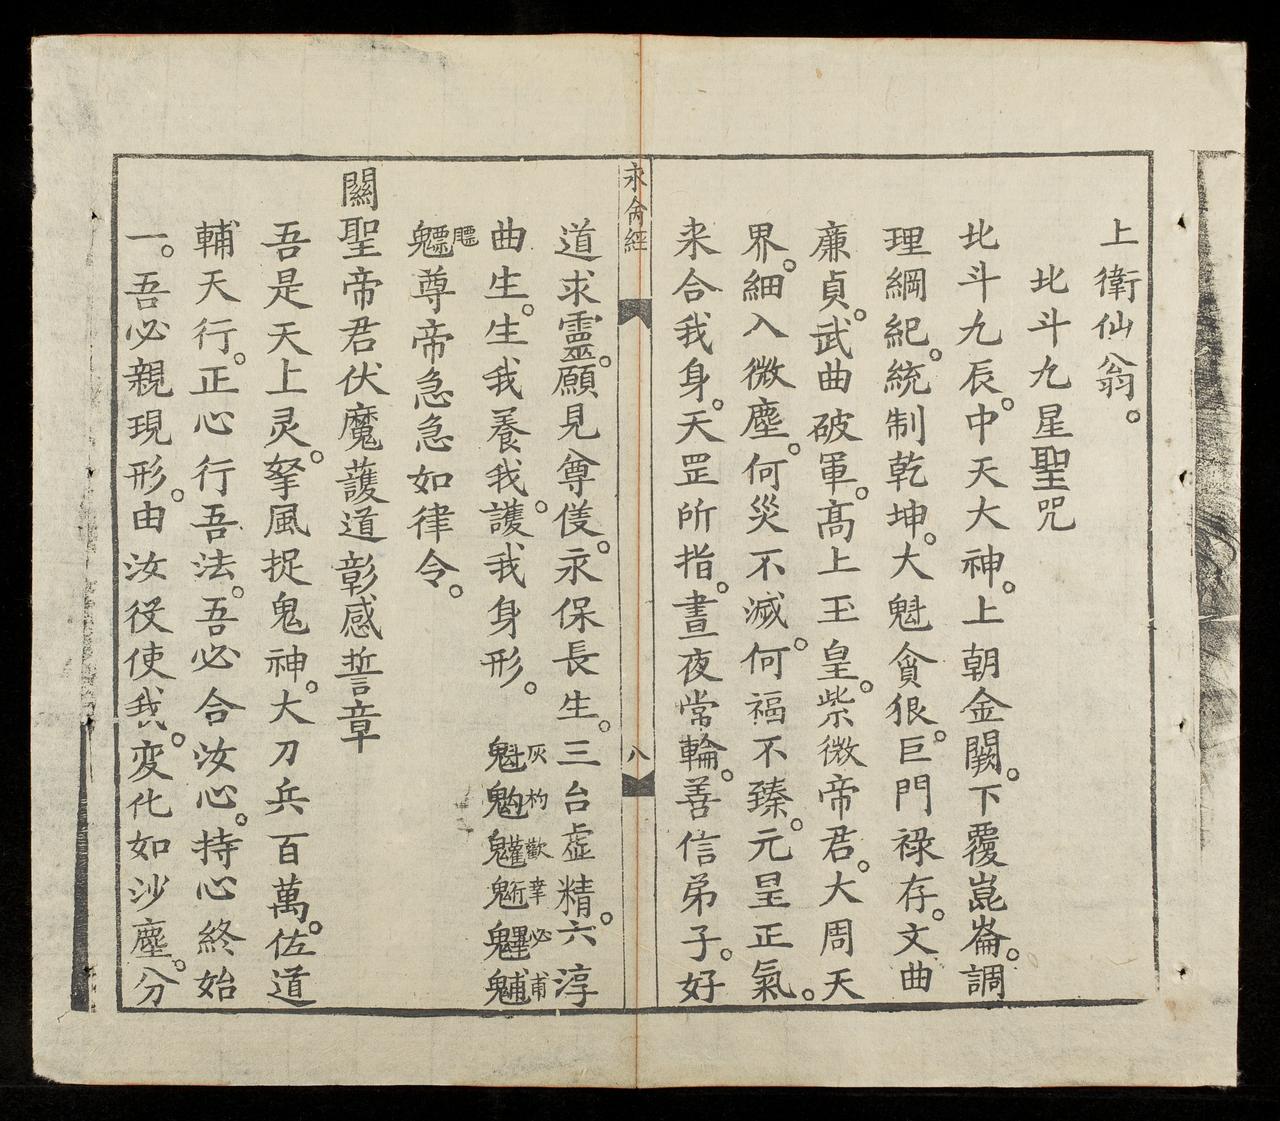 上衛仙翁。
北斗九星聖咒
北斗九辰。中天大神。上朝金闕。下覆崑崙。調
理綱紀。統制乾坤。大魁貪狠。巨門禄存。文曲
廉貞。武曲破軍。髙上玉皇。紫微帝君。大周天
界。細入微塵。何災不滅。何福不臻。元皇正氣。
来合我身。天罡所指。晝夜常輪。善信弟子。好
永命經
八
道求靈。願見尊儀。永保長生。三台虛精。六淳
曲生。生我養我。護我身形。魁灰𩲃杓䰟歡魓必𩳐甫
尊帝急急如律令。
關聖帝君伏魔護道彰感誓章
吾是天上灵。拏風捉鬼神。大刀兵百萬。佐道
輔天行。正心行吾法。吾必合汝心。持心終始
一。吾必親現形。由汝役使我。变化如沙塵。分